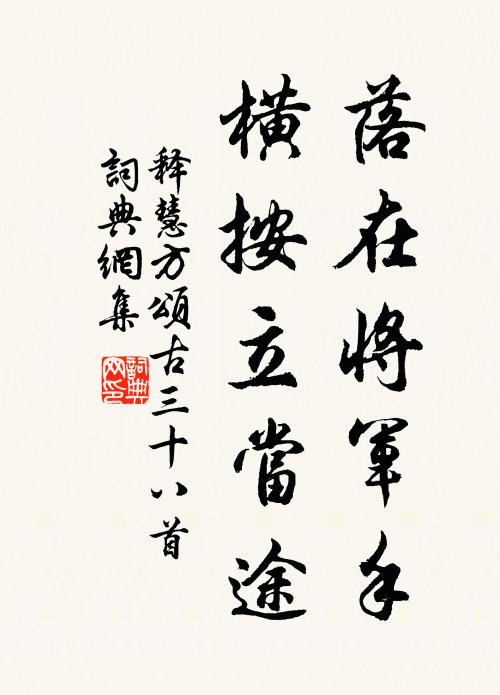 落在將軍手
橫按立當途
释慧方頌古三十八首
詞典網集
詞典网印